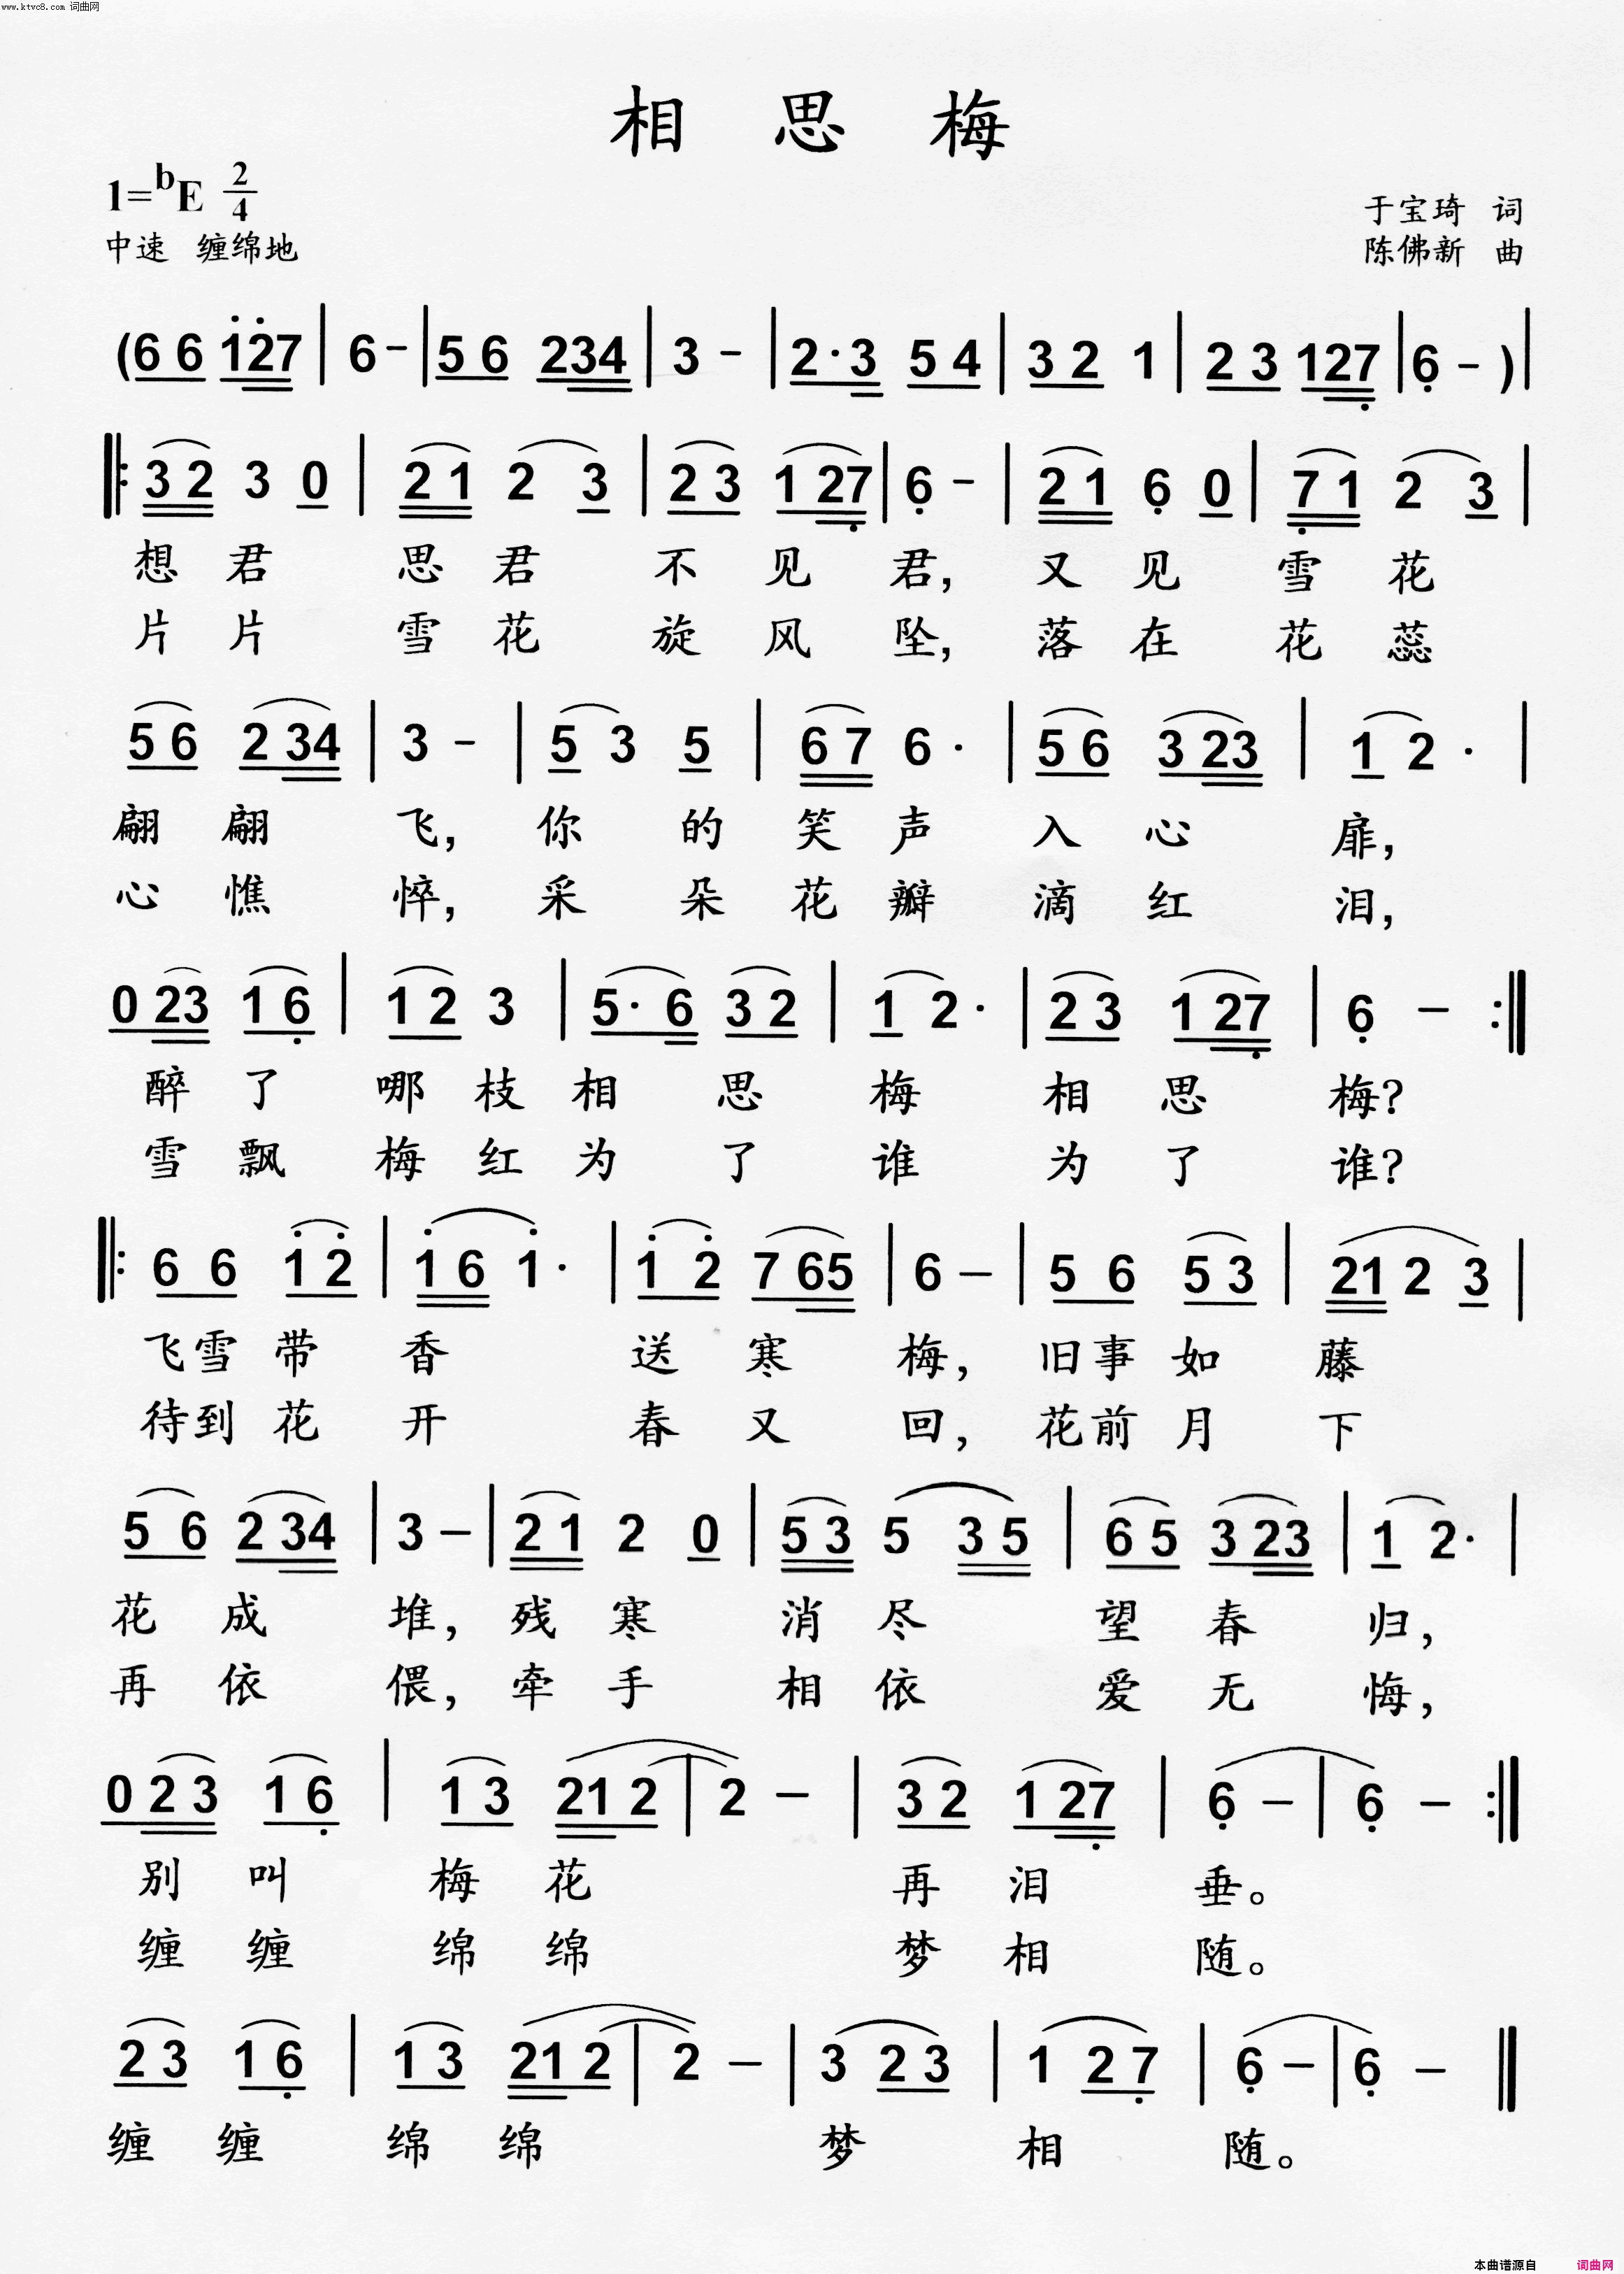 www.ktvc8.com 词曲网
相 思 梅
1=bE 2/4
于宝琦 词
中速 缠绵地
陈佛新 曲
(6 6 127 | 6 - | 5 6 234 | 3 - | 2·3 5 4 | 3 2 1 | 2 3 127 | 6 - ) |
‖: 3 2 3 0 | 2 1 2 3 | 2 3 1 27 | 6 - | 2 1 6 0 | 7 1 2 3 |
想 君 思 君 不 见 君, 又 见 雪 花
片 片 雪 花 旋 风 坠, 落 在 花 蕊
5 6 2 34 | 3 - | 5 3 5 | 6 7 6 · | 5 6 3 23 | 1 2 · |
翩 翩 飞, 你 的 笑 声 入 心 扉,
心 憔 悴, 采 朵 花 瓣 滴 红 泪,
0 23 1 6 | 1 2 3 | 5 · 6 3 2 | 1 2 · | 2 3 1 27 | 6 - :‖
醉 了 哪 枝 相 思 梅 相 思 梅?
雪 飘 梅 红 为 了 谁 为 了 谁?
‖: 6 6 1 2 | 1 6 1 · | 1 2 7 65 | 6 - | 5 6 5 3 | 21 2 3 |
飞雪 带 香 送 寒 梅, 旧事 如 藤
待到 花 开 春 又 回, 花前 月 下
5 6 2 34 | 3 - | 2 1 2 0 | 5 3 5 3 5 | 6 5 3 23 | 1 2 · |
花 成 堆, 残 寒 消 尽 望 春 归,
再 依 偎, 牵 手 相 依 爱 无 悔,
0 2 3 1 6 | 1 3 21 2 | 2 - | 3 2 1 27 | 6 - | 6 - :‖
别 叫 梅 花 再 泪 垂。
缠 缠 绵 绵 梦 相 随。
2 3 1 6 | 1 3 21 2 | 2 - | 3 2 3 | 1 2 7 | 6 - | 6 - ‖
缠 缠 绵 绵 梦 相 随。
本曲谱源自 词曲网